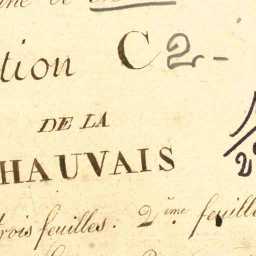 tion C 2-
DE LA
HAUVAIS
trois feuilles. 2ème feuille